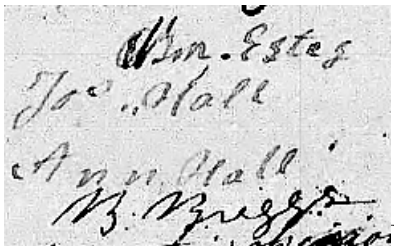 Bm. Estes
Jos. Hall
Ann Hall
B. Briggs